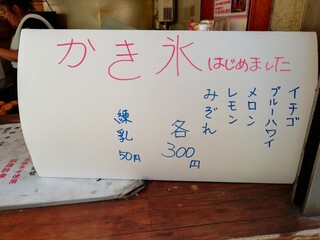 かき氷はじめました
イチゴ
ブルーハワイ
メロン
レモン
みぞれ
各300円
練乳50円